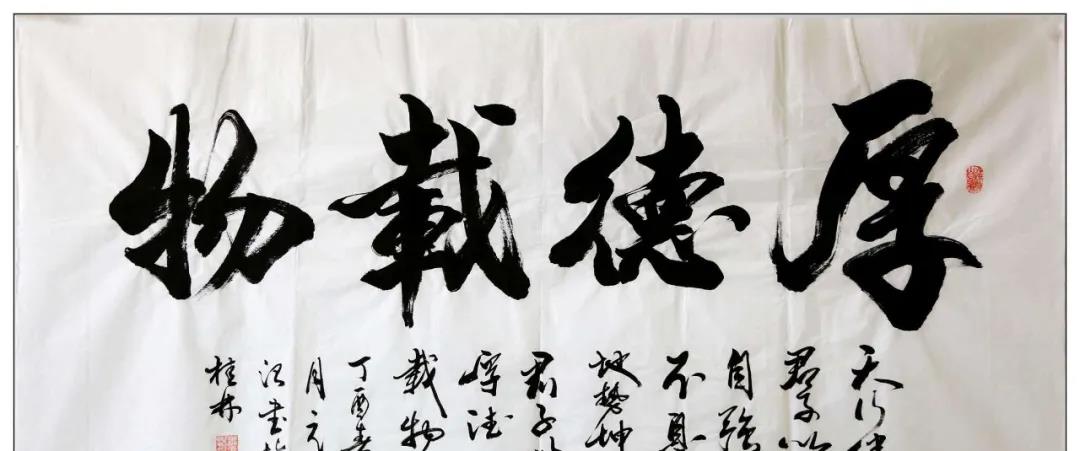 厚德載物
天行
君子以
自強
不息
地勢坤
君子以
厚德
載物
丁酉春
月元
書於
桂林